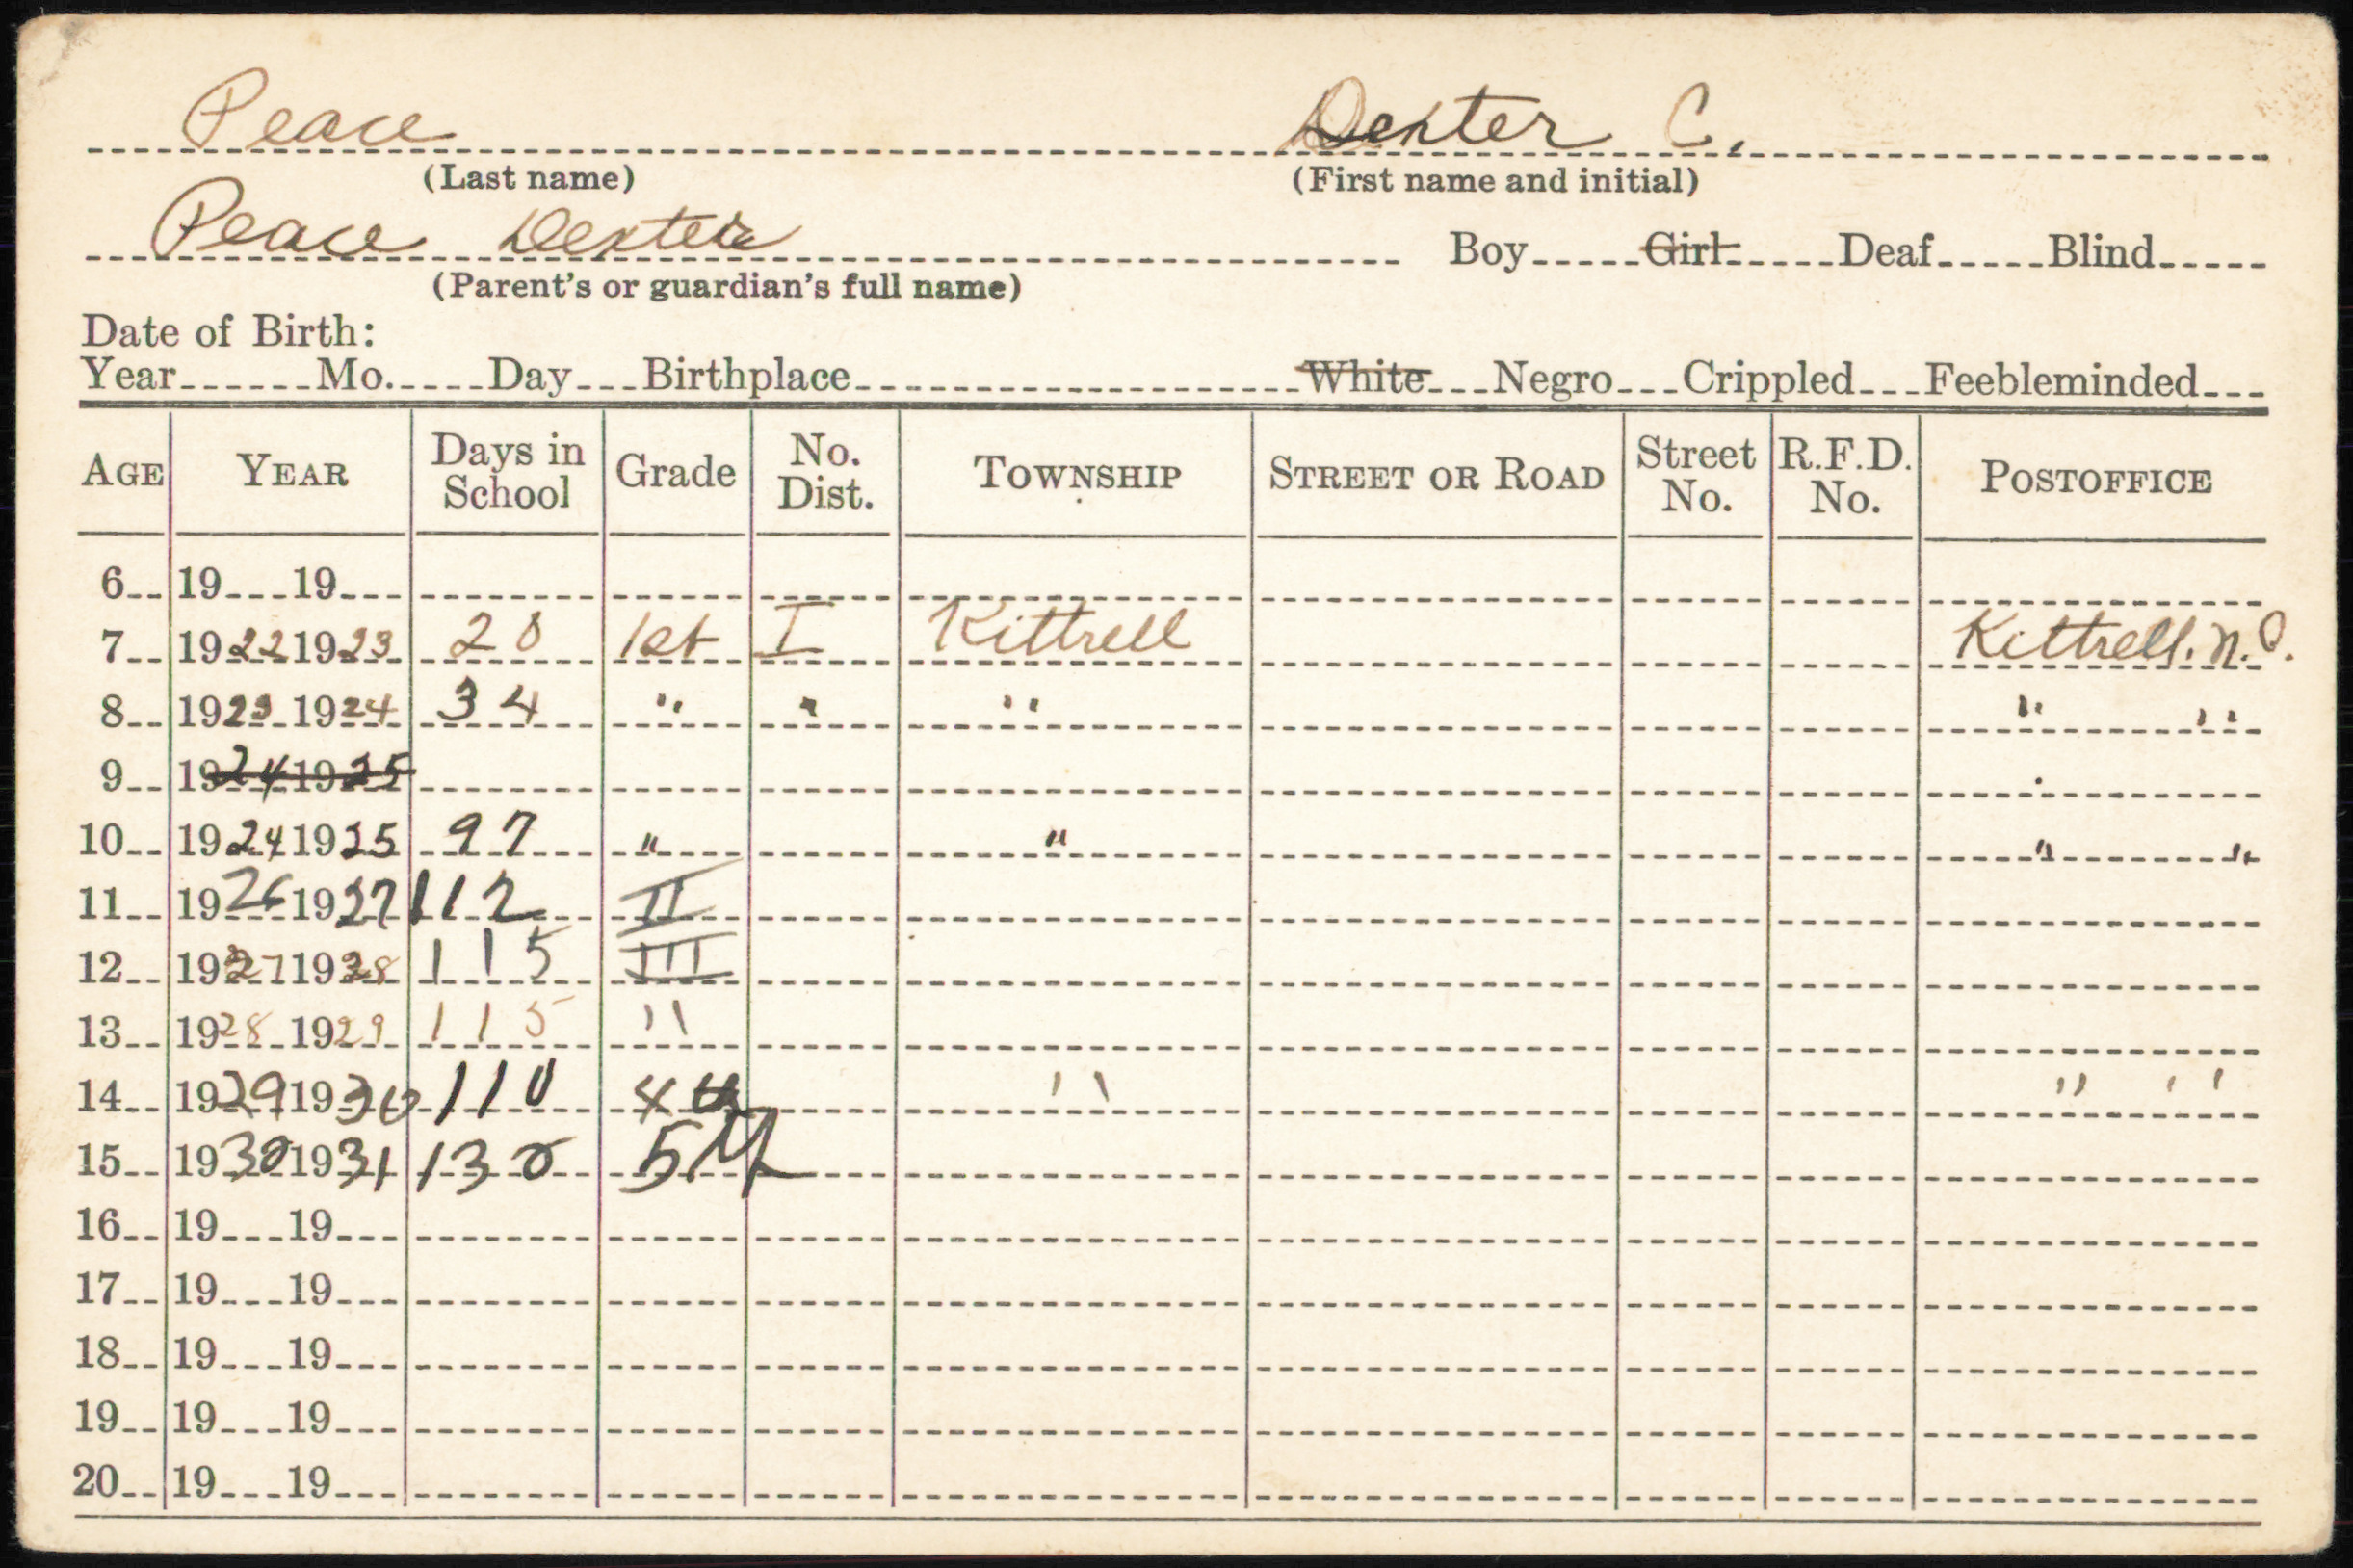 Peace Dexter C.
(Last name) (First name and initial)
Peace Dexter Boy Girl Deaf Blind
(Parent's or guardian's full name)
Date of Birth:
Year Mo. Day Birthplace White Negro Crippled Feebleminded
AGE YEAR Days in School Grade No. Dist. TOWNSHIP STREET OR ROAD Street No. R.F.D. No. POSTOFFICE
6 19 19
7 1922 1923 20 1st I Kittrell Kittrell. N.C.
8 1923 1924 34 " " " " "
9 1924 1925
10 1924 1925 97 " " " "
11 1926 1927 112 II
12 1927 1928 115 III
13 1928 1929 115 "
14 1929 1930 110 4th " " "
15 1930 1931 130 5th
16 19 19
17 19 19
18 19 19
19 19 19
20 19 19